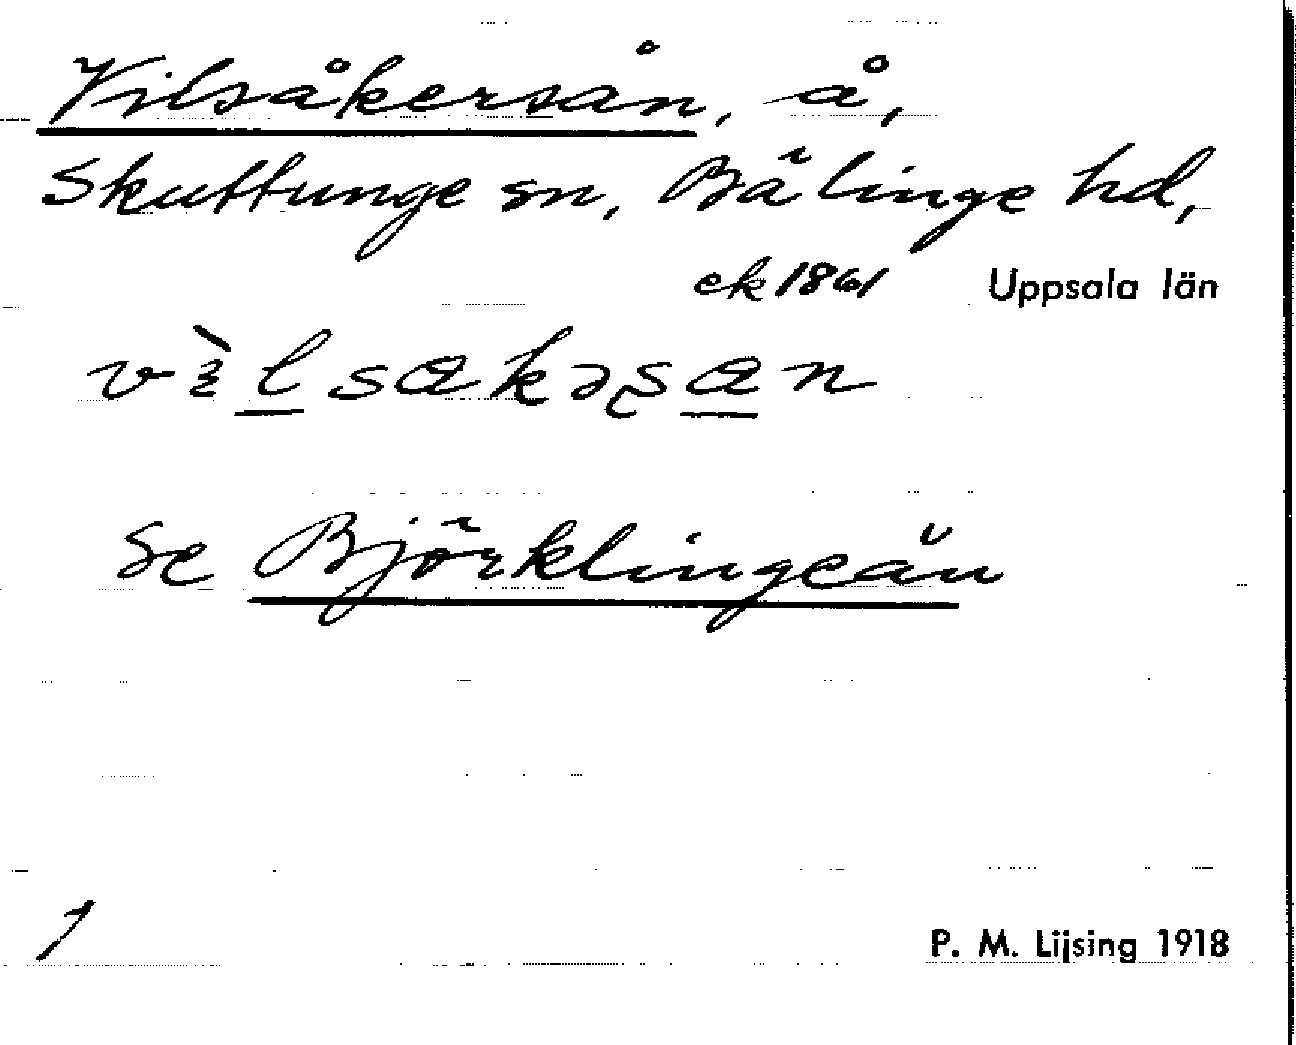 Vilsåkersån, å,
Skuttunge sn, Bälinge hd,
ek 1861 Uppsala län
se Björklingeån
1
P. M. Lijsing 1918